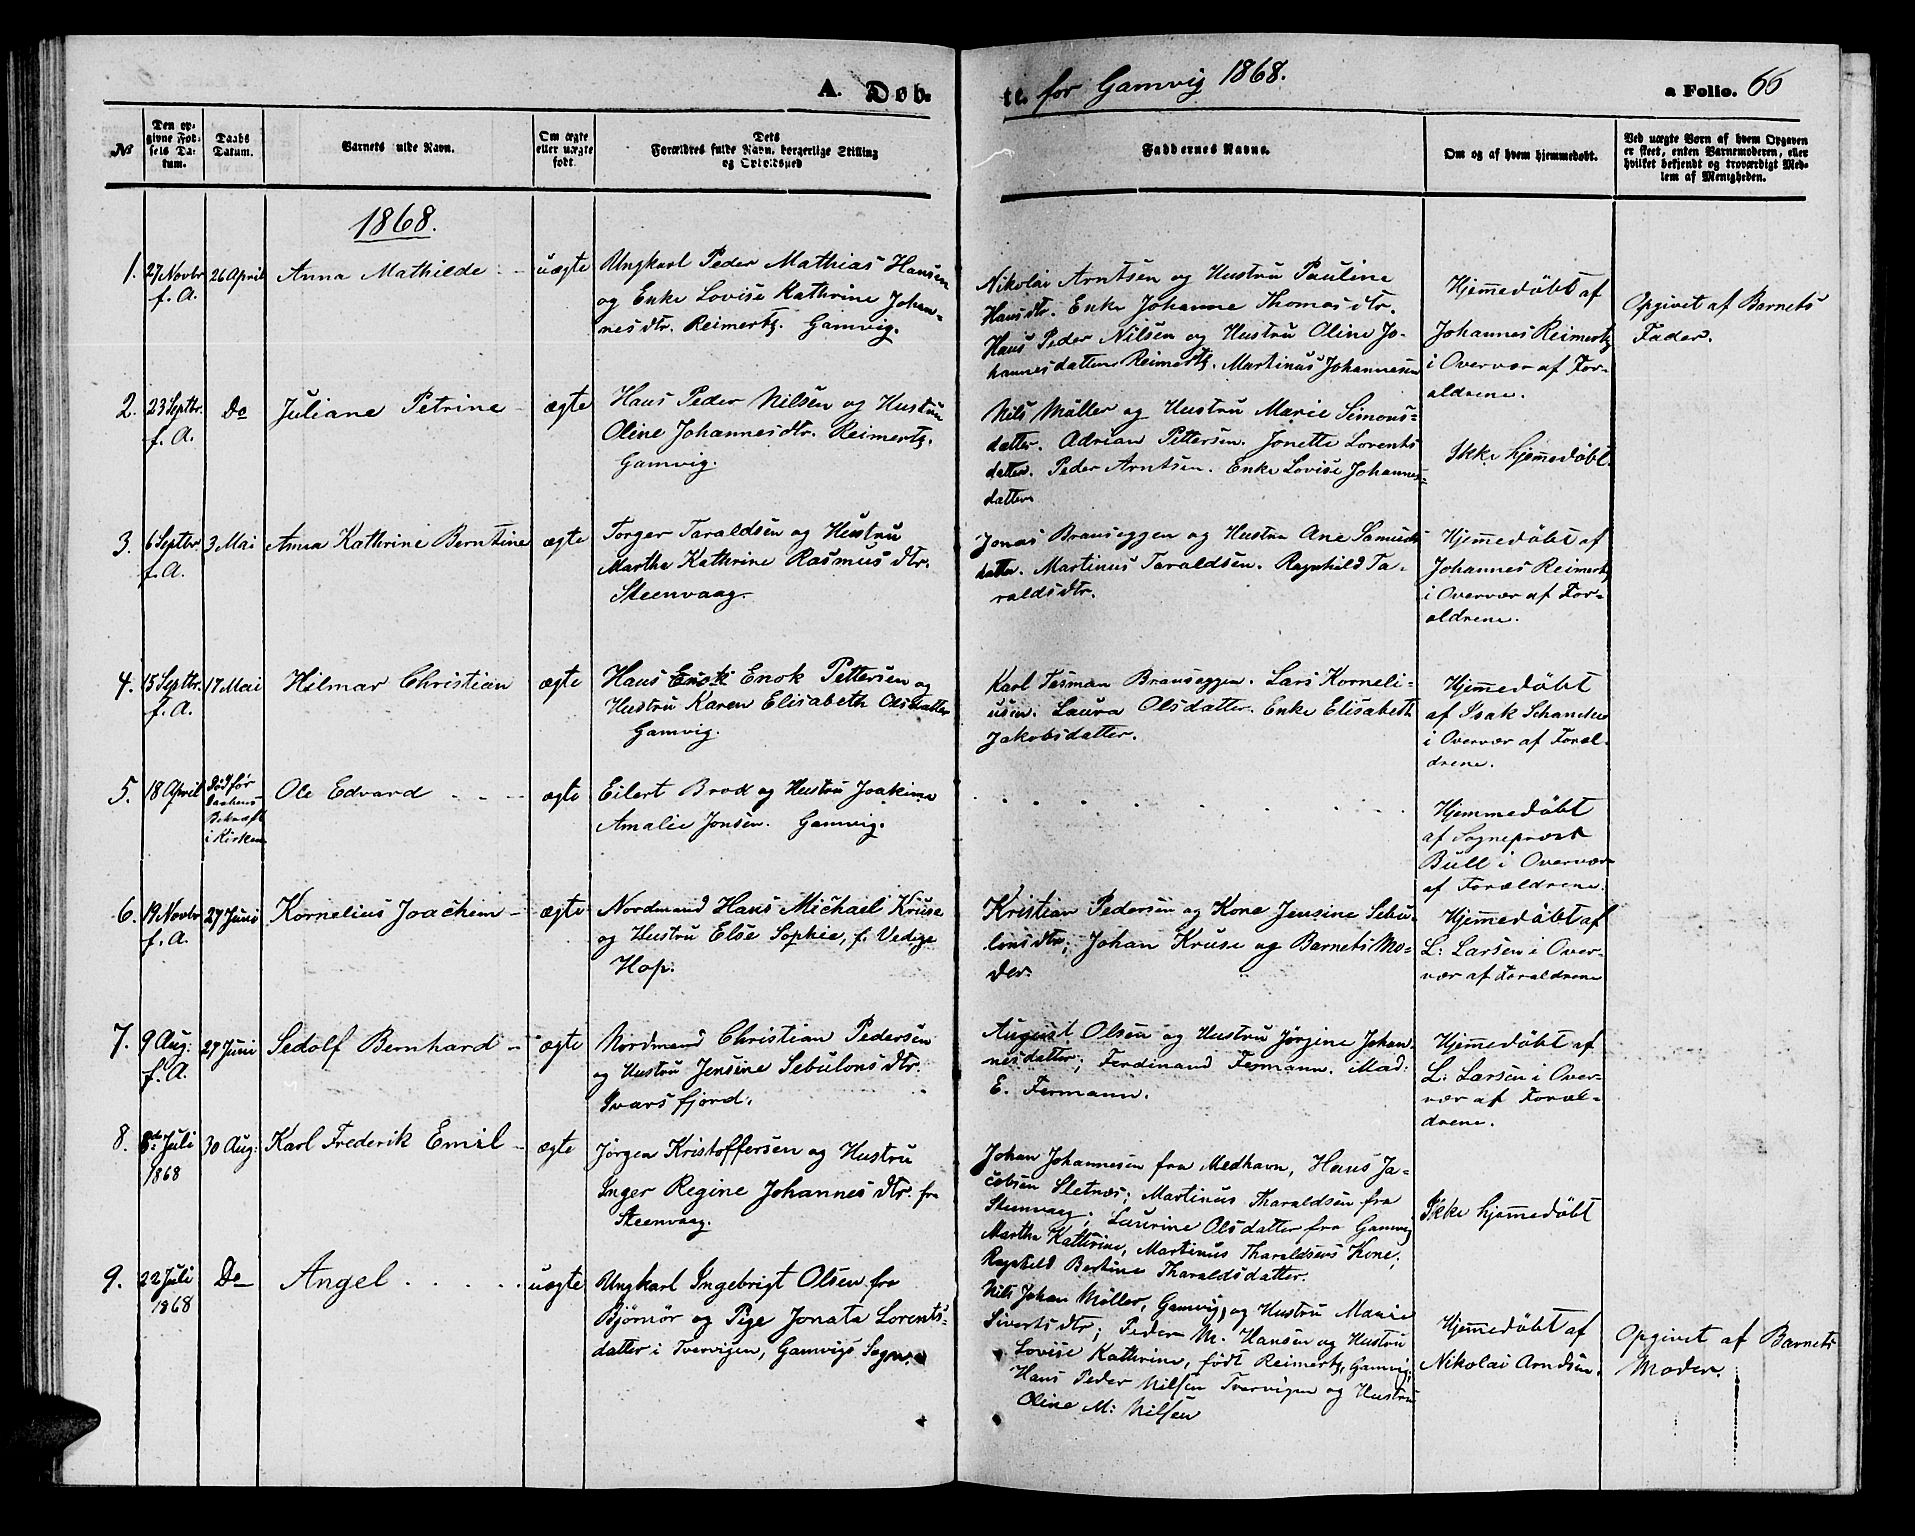 A. Døb-
te. for Gamvig 1868.
a Folio. 66
№
Den op-
givne Fød-
sels Da-
tum.
Daabs
Datum.
Barnets fulde Navn.
Om ægte
eller uægte
født.
Dets
Forældres fulde Navn, borgerlige Stilling
og Opholdssted
Faddernes Navne.
Om og af hvem hjemmedøbt.
Ved uægte Børn af hvem Opgaven
er skeet, enten Barnemoderen, eller
hvilket bekjendt og troværdigt Med-
lem af Menigheden.
1868.
1.
27 Novbr
f. A.
26 April
Anna Mathilde
uægte
Ungkarl Peder Mathias Hansen
og Enke Lovise Kathrine Johan-
nesdtr. Reimertz. Gamvig.
Nikolai Arntsen og Hustru Pauline
Hansdtr. Enke Johanne Thomasdtr.
Hans Peder Nilsen og Hustru Oline Jo-
hannesdatter Reimertz. Martinus Johannesen
Hjemmedøbt af
Johannes Reimertz
i Overvær af For-
ældrene.
Opgivet af Barnets
Fader.
2.
23 Septbr.
f. A.
Do
Juliane Petrine
ægte
Hans Peder Nilsen og Hustru
Oline Johannesdtr. Reimertz.
Gamvig.
Nils Møller og Hustru Marie Simons-
datter. Adrian Pettersen. Jonette Lorents
datter. Peder Arntsen. Enke Lovise Johannes-
datter
Ikke hjemmedøbt.
3.
6 Septbr
f. A.
3 Mai
Anna Kathrine Berntine
ægte
Torger Taraldsen og Hustru
Martha Kathrine Rasmusdtr.
Steenvaag.
Jonas Brauseggen og Hustru Ane Samuels
datter. Martinus Taraldsen. Ragnhild Ta-
raldsdtr.
Hjemmedøbt af
Johannes Reimertz
i Overvær af For-
ældrene.
4.
15 Septbr.
f. A.
17 Mai
Hilmar Christian
ægte
Hans Enok Enok Pettersen og
Hustru Karen Elisabeth Olsdatter
Gamvig.
Karl Tesman Brauseggen. Lars Korneli-
usen. Laura Olsdatter. Enke Elisabeth
Jakobsdatter.
Hjemmedøbt
af Isak Schanche
i Overvær af Foræl-
drene.
5.
18 April
Død før
Daabens
i Kirken
Ole Edvard
ægte
Eilert Brod og Hustru Joakima
Amalie Jonsen. Gamvig.
Hjemmedøbt
af Sognepræst
Bull i Overvær
af Forældrene.
6.
19 Novbr
f. A.
27 Juni
Kornelius Joachim
ægte
Nordmand Hans Michael Kruse
og Hustru Else Sophie, f. Vedige
Hop.
Kristian Pedersen og Kone Jensine Sebu-
lonsdtr; Johan Kruse og Barnets Mo-
der.
Hjemmedøbt af
L: Larsen i Over-
vær af Forældrene
7.
9 Aug:
f. A.
27 Juni
Sedolf Bernhard
ægte
Nordmand Christian Pedersen
og Hustru Jensine Sebulonsdtr.
Ivarsfjord.
August Olsen og Hustru Jørgine Johan-
nesdatter; Ferdinand Fermann. Mad:
E. Fermann.
Hjemmedøbt af
L: Larsen i Over-
vær af Foræl-
drene.
8.
8de Juli
1868
30 Aug:
Karl Frederik Emil
ægte
Jørgen Kristoffersen og Hustru
Inger Regine Johannesdtr. fra
Steenvaag.
Johan Johannesen fra Medhavn, Hans Ja-
cobsen Sletnæs; Martinus Tharaldsen fra
Steenvaag; Laurine Olsdatter fra Gamvig
Martha Kathrine, Martinus Tharaldsens Kone;
Ragnhild Bertine Tharaldsdatter.
Ikke hjemmedøbt
9.
22 Juli
1868
Do
Angel
uægte
Ungkarl Ingebrigt Olsen fra
Bjørnør og Pige Jonata Lorents-
datter i Tvervigen, Gamvigs Sogn.
Nils Johan Møller, Gamvig, og Hustru Marie
Sivertsdtr; Peder M. Hansen og Hustru
Lovise Kathrine, født Reimertz, Gamvig;
Hans Peder Nilsen Tvervigen og Hustru
Oline M: Nilsen
Hjemmedøbt af
Nikolai Arndsen.
Opgivet af Barnets
Moder.